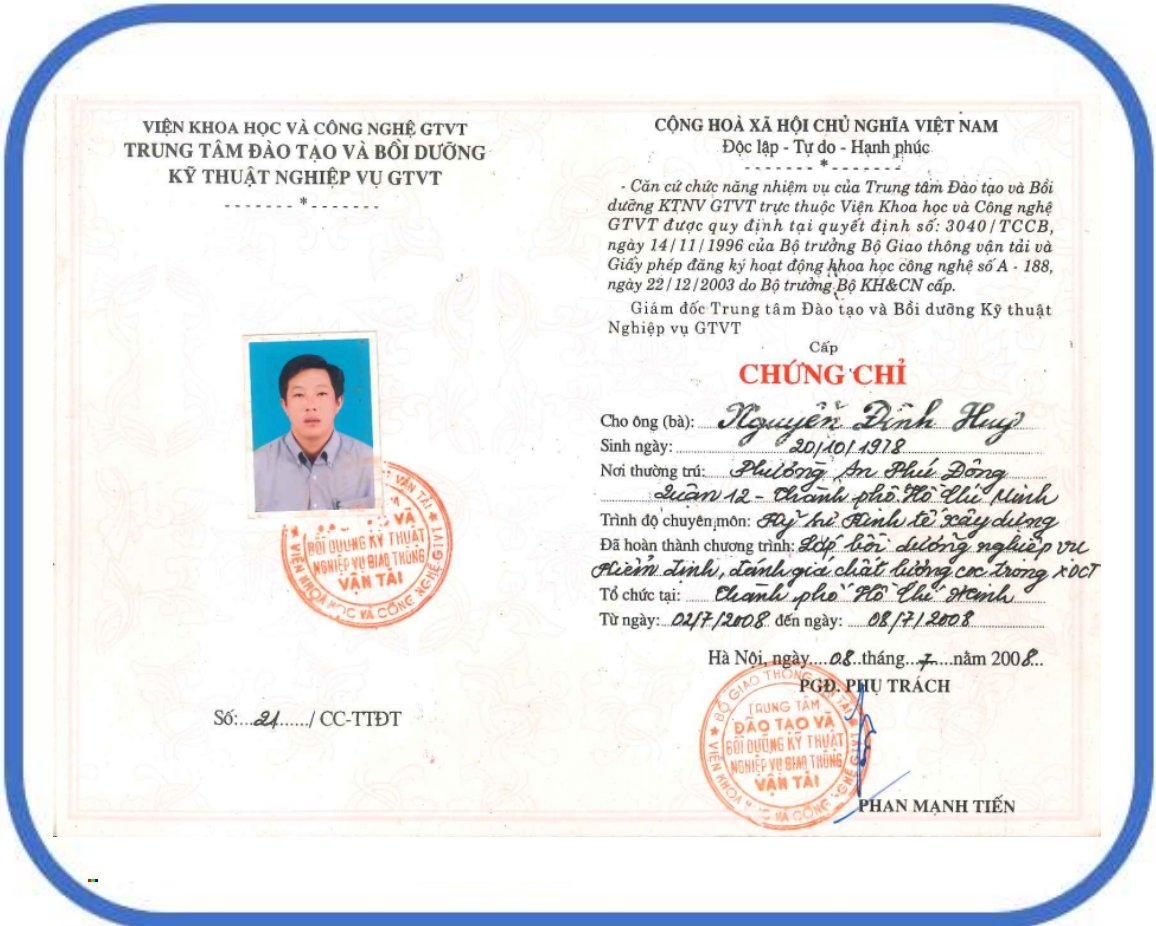 VIỆN KHOA HỌC VÀ CÔNG NGHỆ GTVT
TRUNG TÂM ĐÀO TẠO VÀ BỒI DƯỠNG
KỸ THUẬT NGHIỆP VỤ GTVT
- - - - - - - * - - - - - - -
BỒI DƯỠNG KỸ THUẬT
NGHIỆP VỤ GIAO THÔNG
VẬN TẢI
Số: 21 / CC-TTĐT
CỘNG HOÀ XÃ HỘI CHỦ NGHĨA VIỆT NAM
Độc lập - Tự do - Hạnh phúc
- - - - - - - * - - - - - - -
- Căn cứ chức năng nhiệm vụ của Trung tâm Đào tạo và Bồi
dưỡng KTNV GTVT trực thuộc Viện Khoa học và Công nghệ
GTVT được quy định tại quyết định số: 3040/TCCB,
ngày 14/11/1996 của Bộ trưởng Bộ Giao thông vận tải và
Giấy phép đăng ký hoạt động khoa học công nghệ số A - 188,
ngày 22/12/2003 do Bộ trưởng Bộ KH&CN cấp.
Giám đốc Trung tâm Đào tạo và Bồi dưỡng Kỹ thuật
Nghiệp vụ GTVT
Cấp
CHỨNG CHỈ
Cho ông (bà): Nguyễn Đình Huy
Sinh ngày: 20/10/1978
Nơi thường trú: Phường An Phú Đông
Quận 12 - Thành phố Hồ Chí Minh
Trình độ chuyên môn: Kỹ sư Kinh tế xây dựng
Đã hoàn thành chương trình: Lớp bồi dưỡng nghiệp vụ
Kiểm định, đánh giá chất lượng cọc trong XDCT
Tổ chức tại: Thành phố Hồ Chí Minh
Từ ngày: 02/7/2008 đến ngày: 08/7/2008
Hà Nội, ngày 08 tháng 7 năm 2008
PGĐ. PHỤ TRÁCH
BỘ GIAO THÔNG VẬN TẢI
TRUNG TÂM
ĐÀO TẠO VÀ
BỒI DƯỠNG KỸ THUẬT
NGHIỆP VỤ GIAO THÔNG
VẬN TẢI
VIỆN KHOA HỌC VÀ CÔNG NGHỆ GTVT
PHAN MẠNH TIẾN